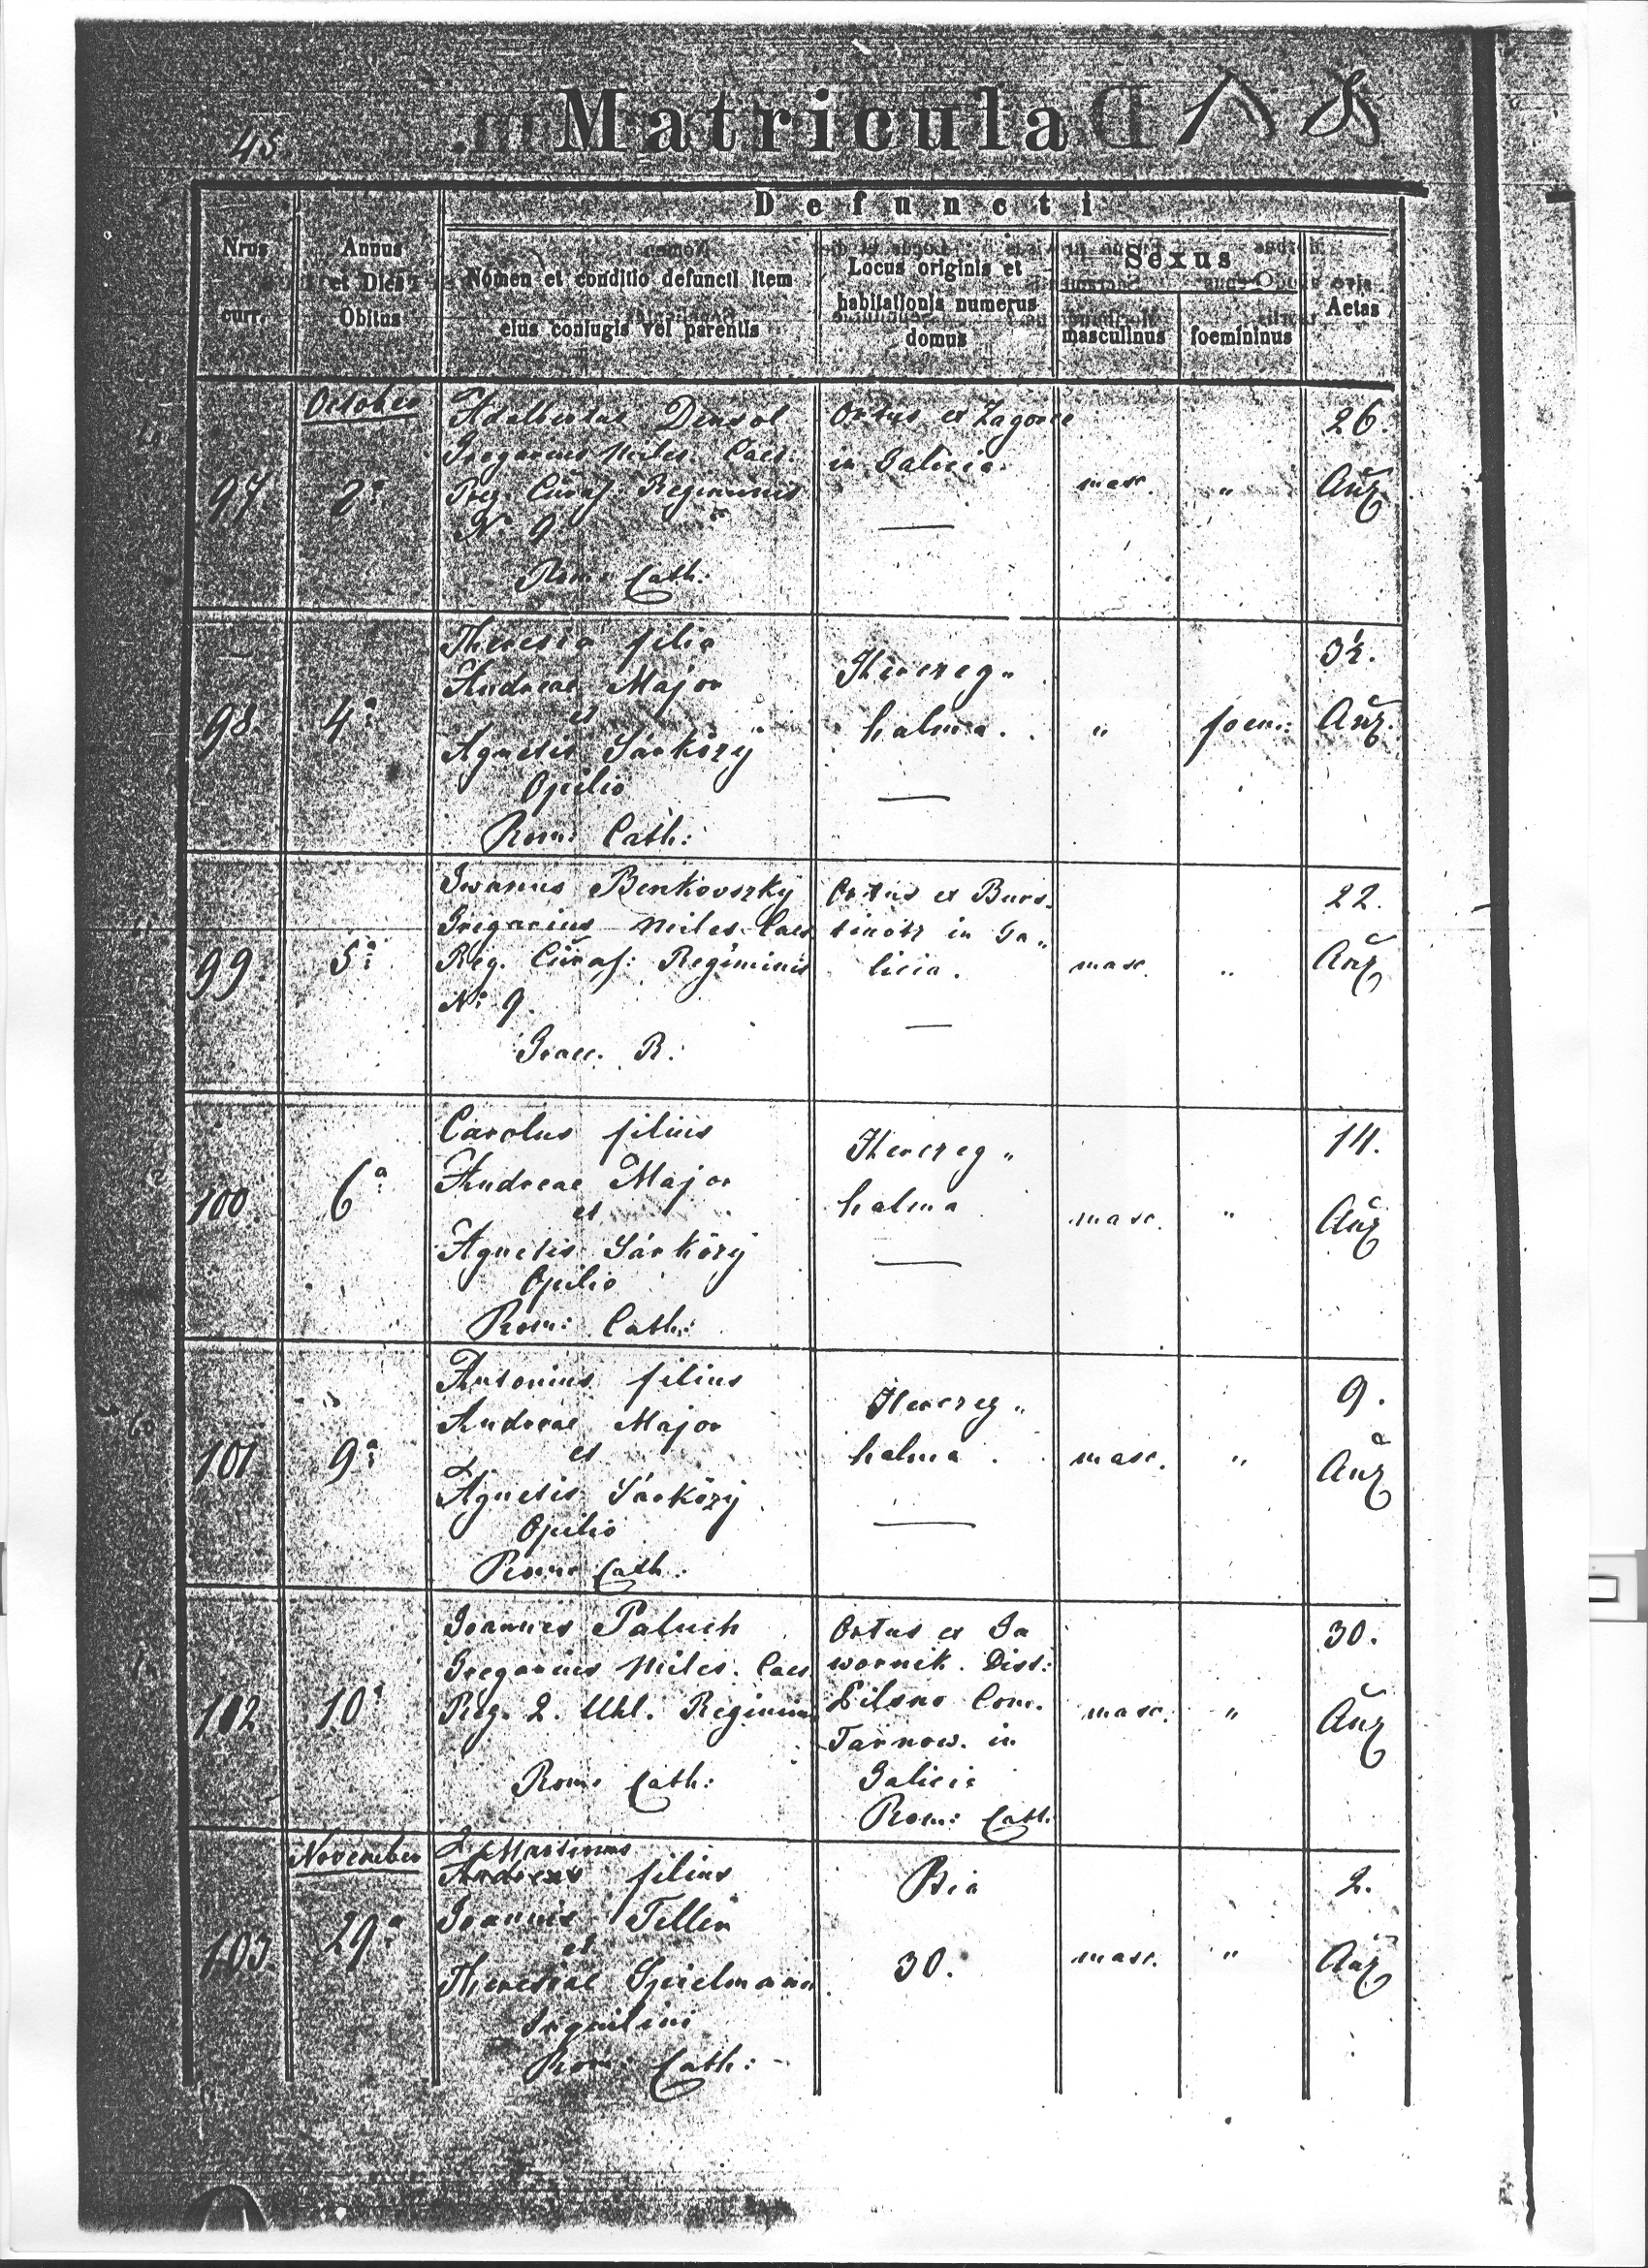 45
Matricula
Defuncti
Nrus
curr.
Annus
et Dies
Obitus
Nomen et conditio defuncti item
eius coniugis vel parentis
Locus originis et
habitationis numerus
domus
Sexus
masculinus
foemininus
Aetas
October
97.
2ª
Adalbertus Densol
Gregarius Miles. Caes.
Reg. Cüraſ. Regiminis
Nº 9.
Rom: Cath:
Ortus ex Zagorce
in Galicia.
masc.
"
26.
Añ
98.
4ª
Theresia filia
Andreae Major
et
Agnetis Sárközÿ
Opilio
Rom: Cath:
Herczeg"
halma.
"
foem:
3½.
Añ.
99
5ª
Iwanus Benkovszkÿ
Gregarius Miles Caes
Reg. Cüraſ: Regiminis
Nº 9.
Graec. R.
Ortus ex Burs-
tinotz in Ga"
licia.
masc.
"
22.
Añ
100.
6ª
Carolus filius
Andreae Major
et
Agnetis Sárközÿ
Opilio
Rom: Cath:
Herczeg"
halma
masc.
"
14.
Añ
101
9ª
Antonius filius
Andreae Major
et
Agnetis Sárközÿ
Opilio
Rom: Cath:
Herczeg"
halma.
masc.
"
9.
Añ
102
10ª
Joannes Paluch
Gregarius Miles. Caes
Reg. 2. Uhl. Regiminis
Rom: Cath:
Ortus ex Ja
wornik. Dist:
Pilsno Com.
Tarnow. in
Galicia
Rom: Cath:
masc.
"
30.
Añ
November
103.
29ª
Martinus
Andreas filius
Joannis Teller
et
Theresiae Speielmann
Inquilini
Rom: Cath:
Bia
30.
masc.
"
2.
Añ